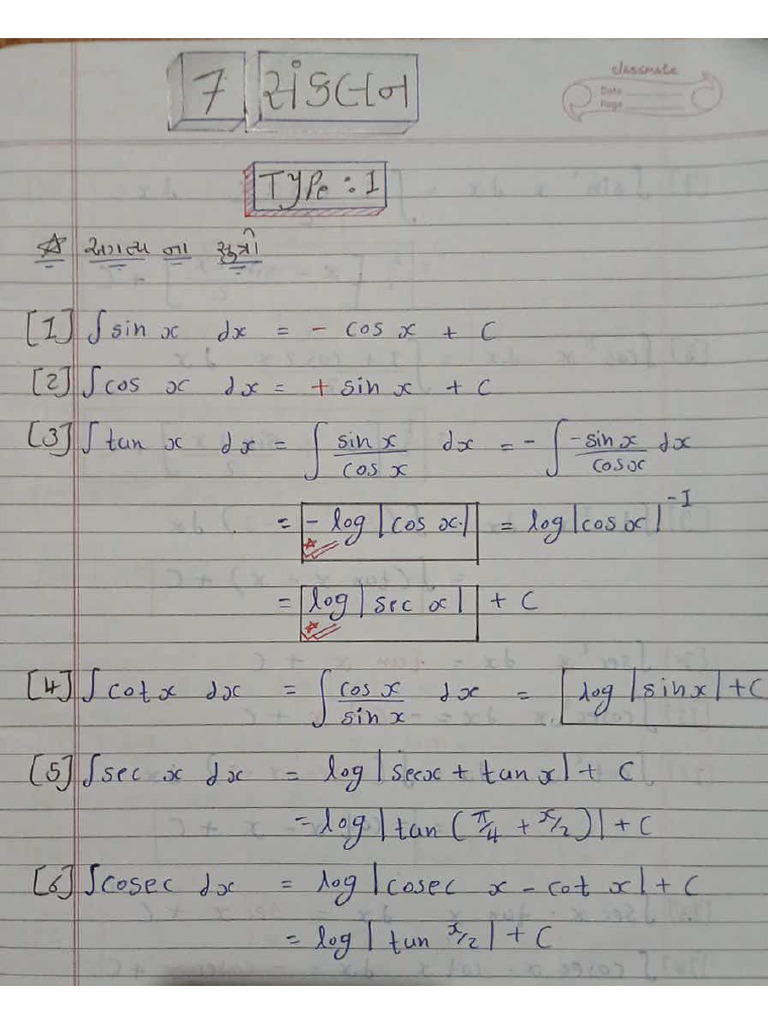 7 સંકલન
classmate
Date
Page
TYPe : I
☆ અગત્ય ના સુત્રો
[1] ∫ sin x dx = - cos x + C
[2] ∫ cos x dx = + sin x + C
[3] ∫ tan x dx = ∫ sin x / cos x dx = - ∫ -sin x / cos x dx
= - log |cos x| = log |cos x|⁻¹
= log | sec x | + C
[4] ∫ cot x dx = ∫ cos x / sin x dx = log |sin x| + C
[5] ∫ sec x dx = log | sec x + tan x | + C
= log | tan ( π/4 + x/2 ) | + C
[6] ∫ cosec dx = log | cosec x - cot x | + C
= log | tan x/2 | + C